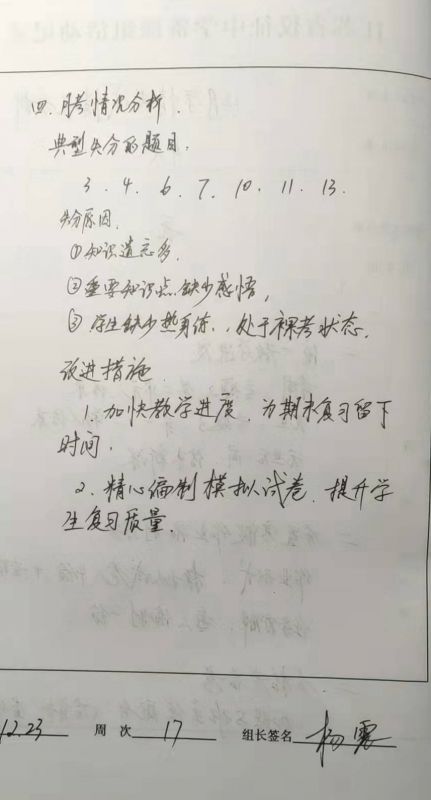 四. 月考情况分析.
典型失分的题目.
3. 4. 6. 7. 10. 11. 13.
失分原因.
①知识遗忘多.
②重要知识点缺少感悟,
③学生缺少热身练, 处于裸考状态.
改进措施
1. 加快教学进度, 为期末复习留下
时间.
2. 精心编制模拟试卷. 提升学
生复习质量.
12.23 周 次 17 组长签名 杨震